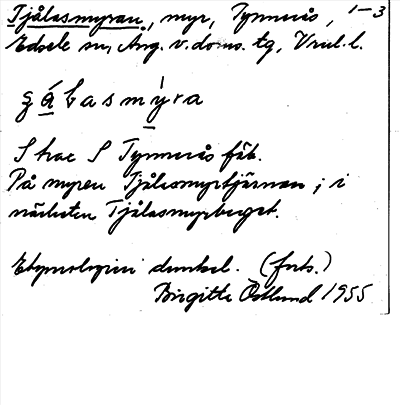 Tjålasmyran, myr, Tynnerås, 1-3
Edsele sn, Ång. v. doms. tg,
gå̱basmy̱ra
Strax S Tynnerås fäb.
På myren Tjålasmyrtjärnen; i
närheten Tjålasmyrberget.
Etymologien dunkel. (forts.)
Birgitta Östlund 1955